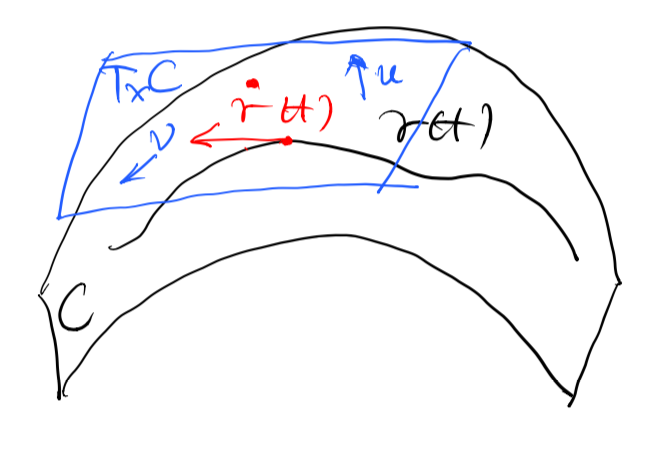 TₓC
u
γ̇(t)
γ(t)
v
C